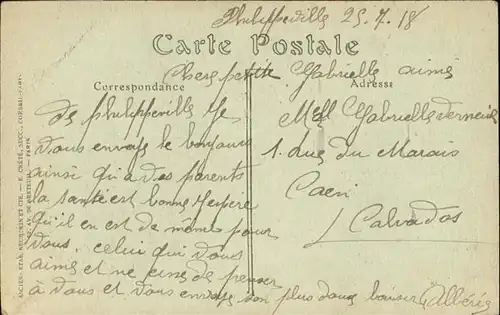 Philippeville 25.7.18
Carte Postale
Correspondance
Adresse
Chere petite Gabrielle aimé
de philippeville Je
vous envoye le bonjours
ainsi qu'a vos parents
la santé est bonne j'espère
qu'il en est de mêmes pour
vous. celui qui vous
aime et ne cesse de penser
à vous et vous envoye son plus doux baiser Albéric
Mell Gabrielle
1. rue du Marais
Caen
Calvados